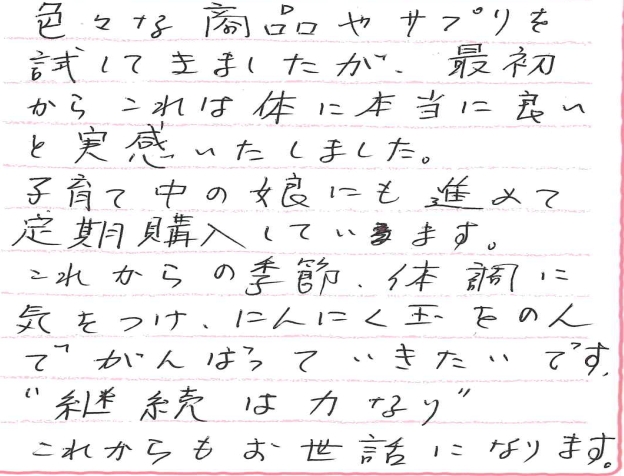 色々な商品やサプリを
試してきましたが、最初
からこれは体に本当に良い
と実感いたしました。
子育て中の娘にも進めて
定期購入しています。
これからの季節、体調に
気をつけ、にんにく玉をのん
でがんばっていきたいです。
“継続は力なり”
これからもお世話になります。